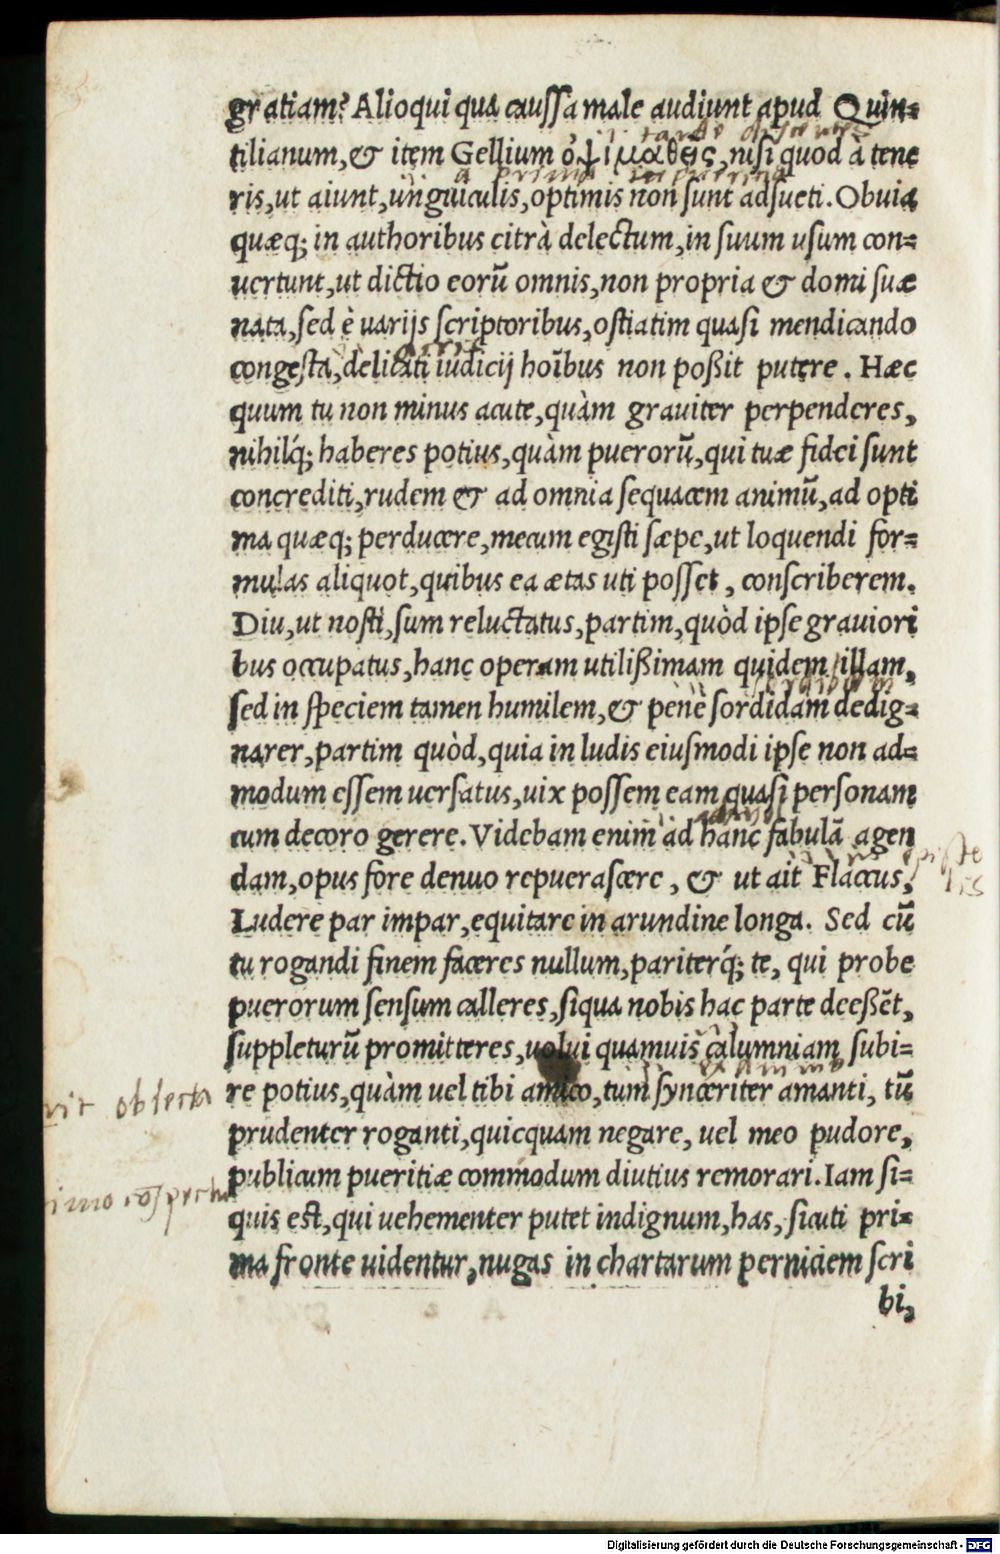 gratiam? Alioqui qua caussa male audiunt apud Quin=
tilianum, & item Gellium ὀψιμαθεῖς, nisi quod à tene
ris, ut aiunt, unguiculis, optimis non sunt adsueti. Obuia
quæq; in authoribus citrà delectum, in suum usum con=
uertunt, ut dictio eorũ omnis, non propria & domi suæ
nata, sed è uarijs scriptoribus, ostiatim quasi mendicando
congesta, delicati iudicij hoĩbus non poßit putere. Hæc
quum tu non minus acute, quàm grauiter perpenderes,
nihilq́; haberes potius, quàm puerorũ, qui tuæ fidei sunt
concrediti, rudem & ad omnia sequacem animũ, ad opti
ma quæq; perducere, mecum egisti sæpe, ut loquendi for=
mulas aliquot, quibus ea ætas uti posset, conscriberem.
Diu, ut nosti, sum reluctatus, partim, quòd ipse grauiori
bus occupatus, hanc operam utilißimam quidem illam,
sed in speciem tamen humilem, & penè sordidam dedig=
narer, partim quòd, quia in ludis eiusmodi ipse non ad=
modum essem uersatus, uix possem eam quasi personam
cum decoro gerere. Videbam enim ad hanc fabulã agen
dam, opus fore denuo repuerascere, & ut ait Flaccus,
Ludere par impar, equitare in arundine longa. Sed cũ
tu rogandi finem faceres nullum, pariterq́; te, qui probe
puerorum sensum calleres, siqua nobis hac parte deeßẽt,
suppleturũ promitteres, uolui quamuis calumniam subi=
re potius, quàm uel tibi amico, tum synceriter amanti, tũ
prudenter roganti, quicquam negare, uel meo pudore,
publicum pueritiæ commodum diutius remorari. Iam si=
quis est, qui uehementer putet indignum, has, sicuti pri=
ma fronte uidentur, nugas in chartarum perniciem scri
bi,
Digitalisierung gefördert durch die Deutsche Forschungsgemeinschaft - DFG